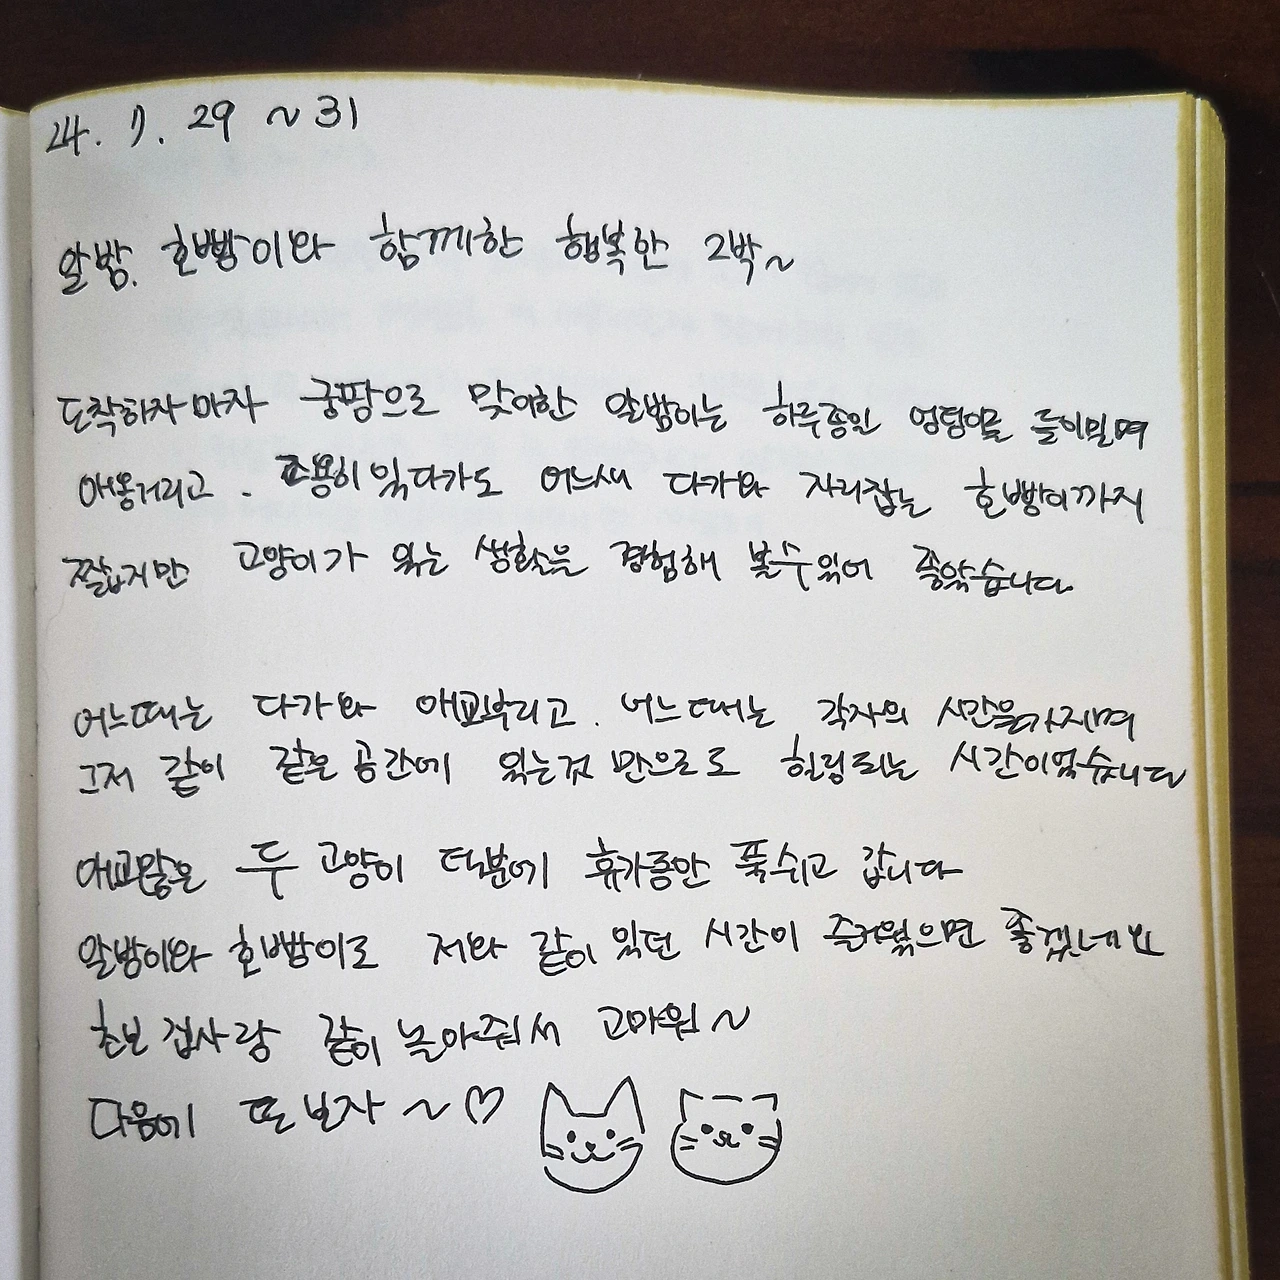 24. 7. 29 ~ 31
알밤, 호빵이와 함께한 행복한 2박~
도착하자 마자 궁팡으로 맞이한 알밤이는 하루종일 엉덩이를 들이밀며
애옹거리고. 조용히 있다가도 어느새 다가와 자리잡는 호빵이까지
짧지만 고양이가 있는 생활을 경험해 볼수있어 좋았습니다
어느때는 다가와 애교부리고. 어느때는 각자의 시간을가지며
그저 같이 같은 공간에 있는것 만으로도 힐링되는 시간이었습니다
애교많은 두 고양이 덕분에 휴가동안 푹쉬고 갑니다
알밤이와 호빵이도 저와 같이 있던 시간이 즐거웠으면 좋겠네요
초보 집사랑 같이 놀아줘서 고마워~
다음에 또 보자 ~♡